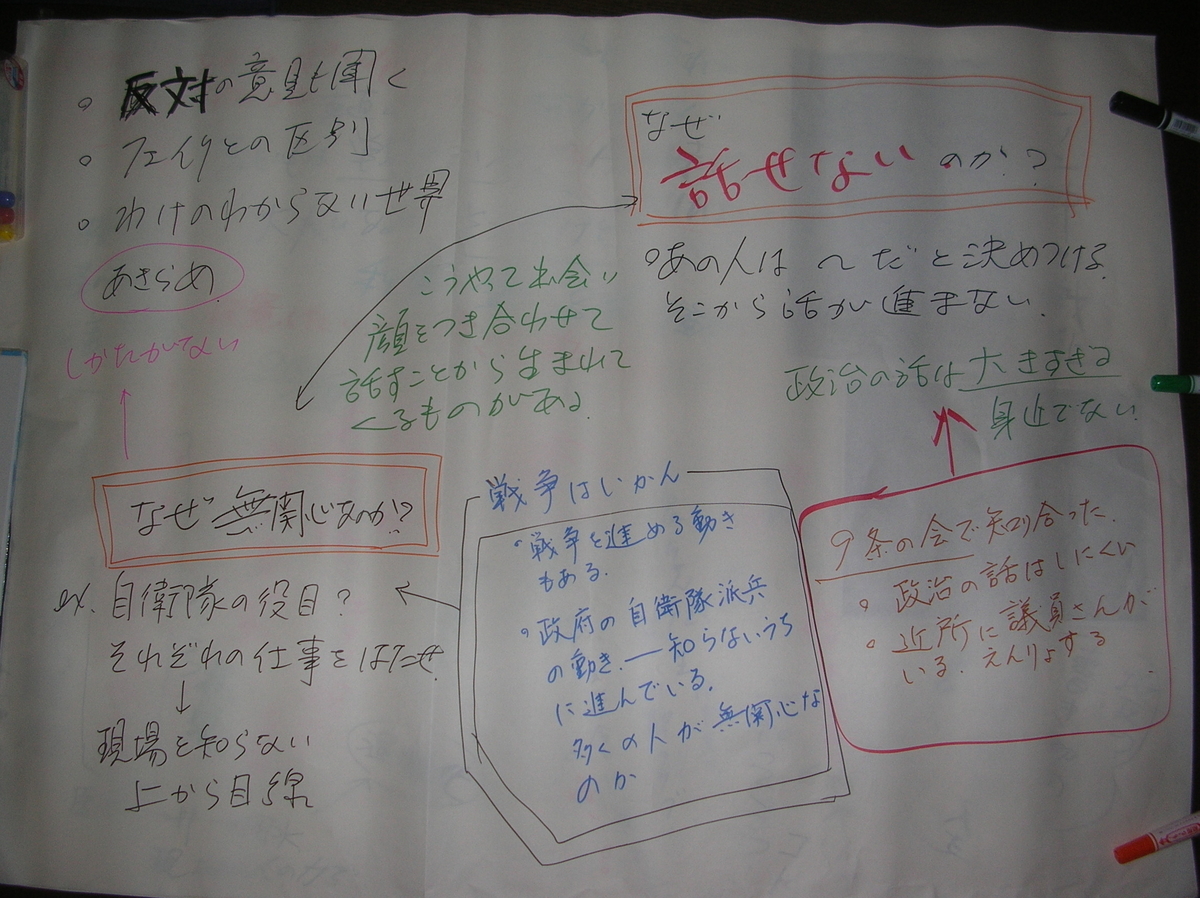 。反対の意見も聞く
。フェイクとの区別
。わけのわからない世界
あきらめ
しかたがない
なぜ
話せないのか?
。あの人は〜だと決めつける
そこから話が進まない.
こうやって出会い
顔をつき合わせて
話すことから生まれて
くるものがある.
政治の話は大きすぎる
身近でない.
なぜ無関心なのか?
ex. 自衛隊の役目?
それぞれの仕事をはたせ.
↓
現場を知らない
上から目線
戦争はいかん
。戦争を進める動き
もある.
。政府の自衛隊派兵
の動き.―知らないうち
に進んでいる.
多くの人が無関心な
のか
9条の会で知り合った.
。政治の話はしにくい
。近所に議員さんが
いる. えんりょする